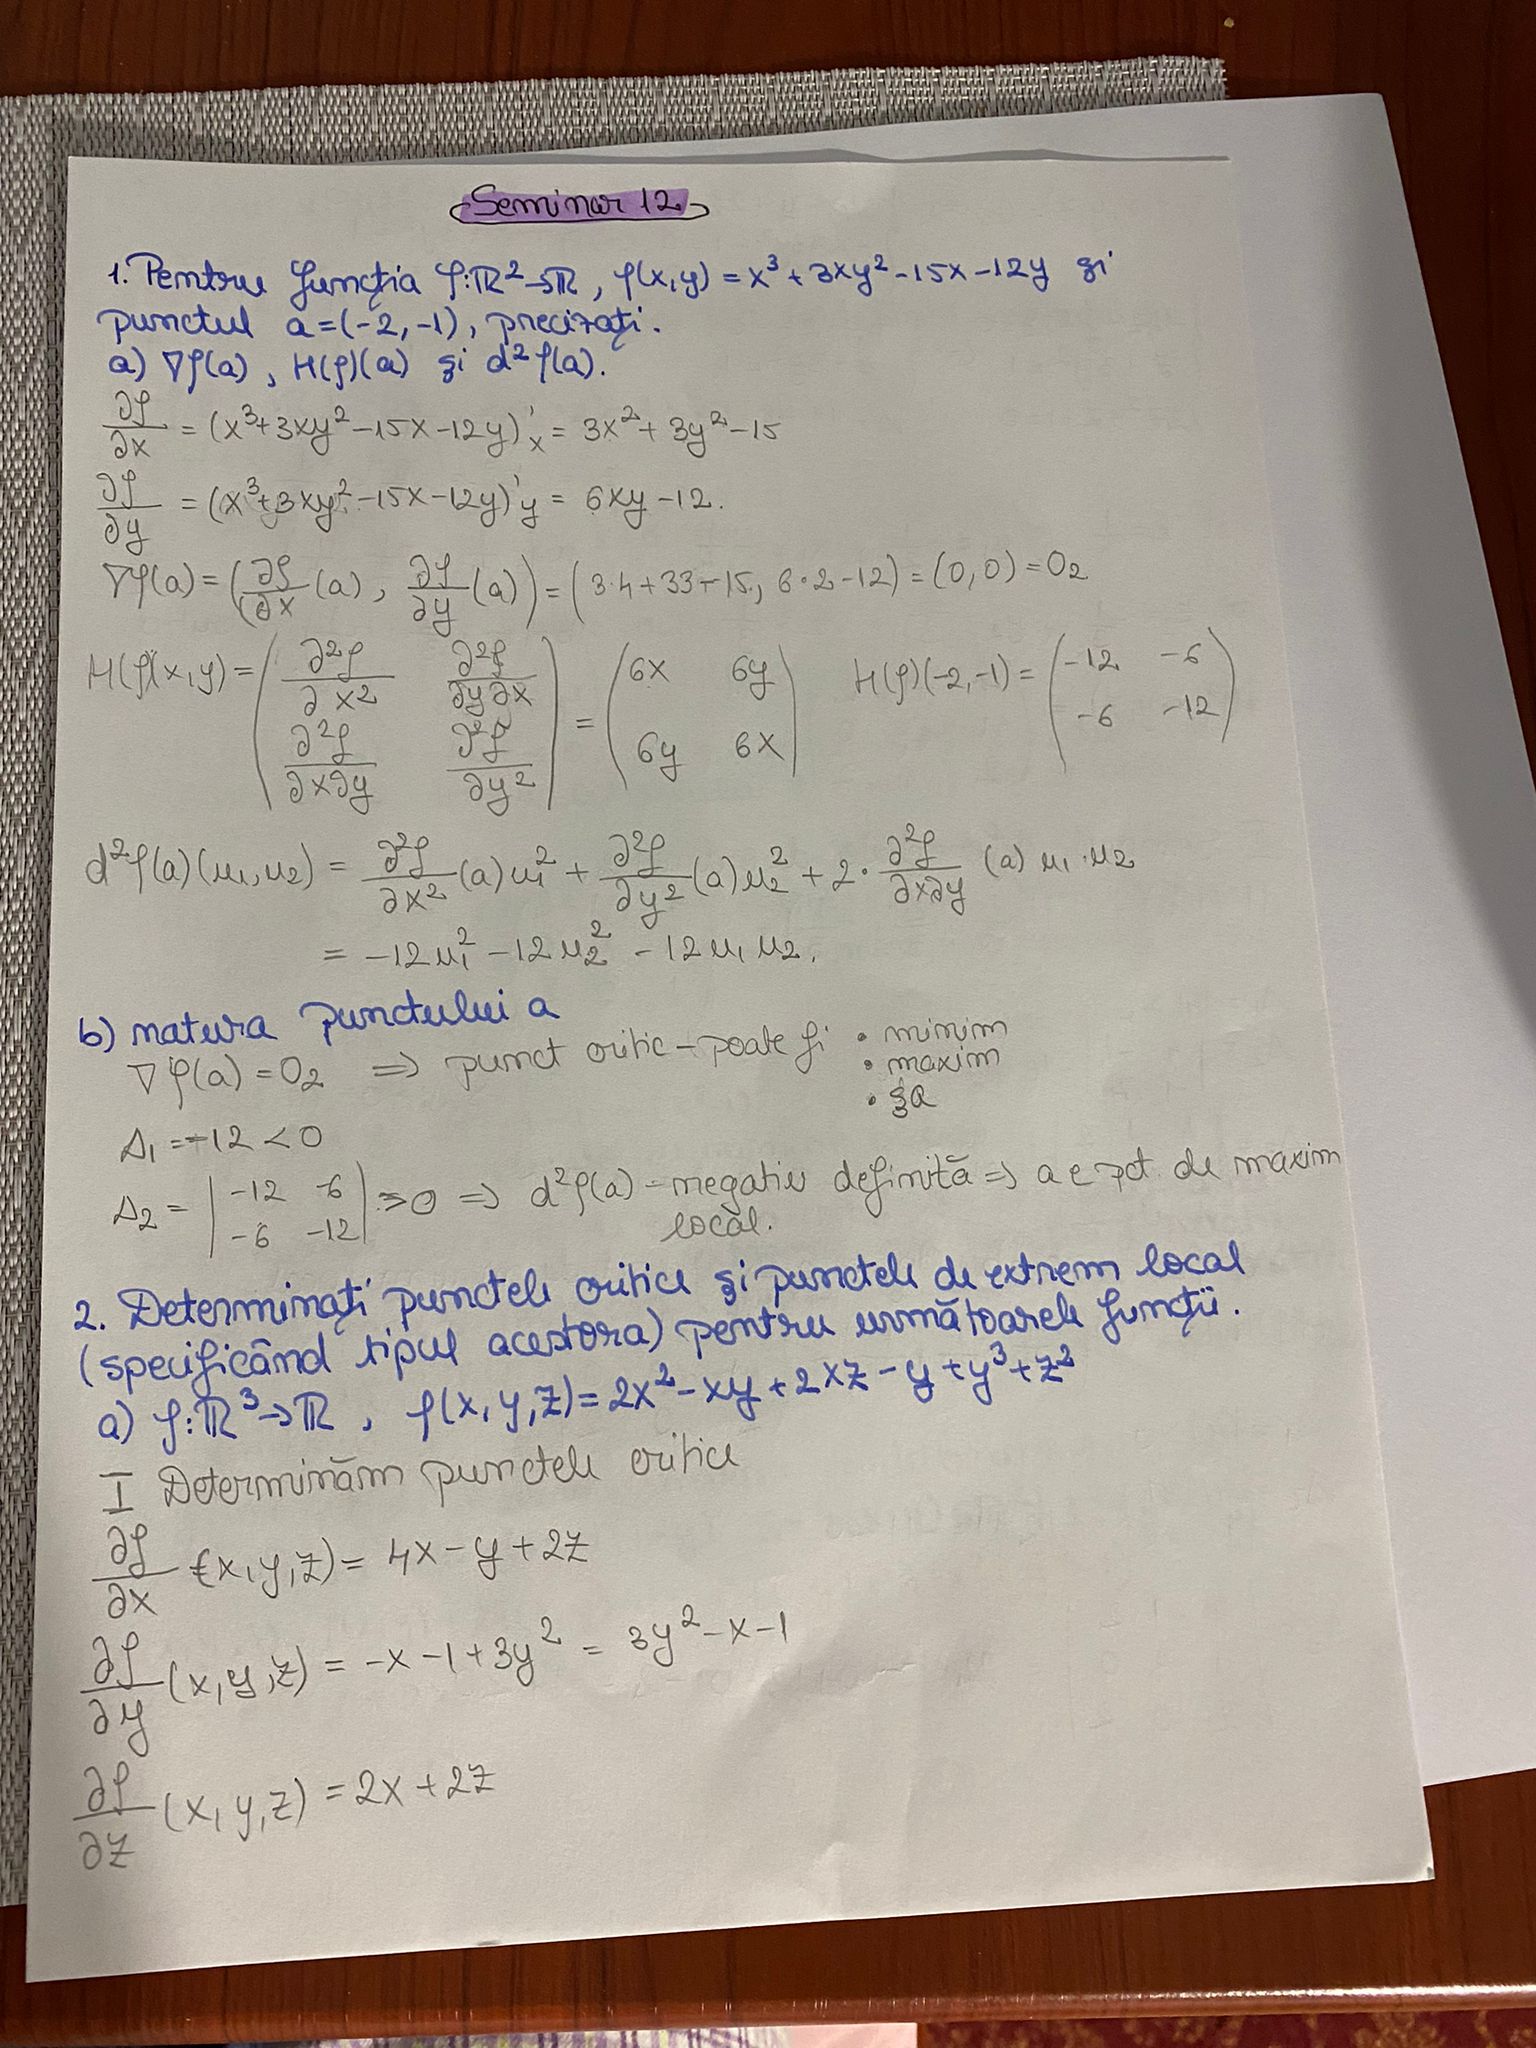 Seminar 12
1. Pentru funcția f:ℝ²→ℝ, f(x,y)=x³+3xy²-15x-12y și
punctul a=(-2,-1), precizați.
a) ∇f(a), H(f)(a) și d²f(a).
∂f/∂x = (x³+3xy²-15x-12y)'x = 3x²+3y²-15
∂f/∂y = (x³+3xy²-15x-12y)'y = 6xy-12.
∇f(a)=(∂f/∂x (a), ∂f/∂y (a))=(3·4+33-15, 6·2-12)=(0,0)=O₂
H(f)(x,y)=(∂²f/∂x² ∂²f/∂y∂x ; ∂²f/∂x∂y ∂²f/∂y²) = (6x 6y ; 6y 6x) H(f)(-2,-1)=(-12 -6 ; -6 -12)
d²f(a)(u₁,u₂) = ∂²f/∂x² (a)u₁² + ∂²f/∂y² (a)u₂² + 2·∂²f/∂x∂y (a) u₁·u₂
= -12u₁² -12u₂² -12u₁u₂.
b) natura punctului a
∇f(a)=O₂ ⇒ punct critic - poate fi • minim
• maxim
• șa
Δ₁=-12<0
Δ₂=|-12 -6 ; -6 -12|>0 ⇒ d²f(a)-negativ definită ⇒ a e pct. de maxim
local.
2. Determinați punctele critice și punctele de extrem local
(specificând tipul acestora) pentru următoarele funcții.
a) f:ℝ³→ℝ, f(x,y,z)=2x²-xy+2xz-y+y³+z²
I Determinăm punctele critice
∂f/∂x (x,y,z)=4x-y+2z
∂f/∂y (x,y,z)=-x-1+3y² = 3y²-x-1
∂f/∂z (x,y,z)=2x+2z